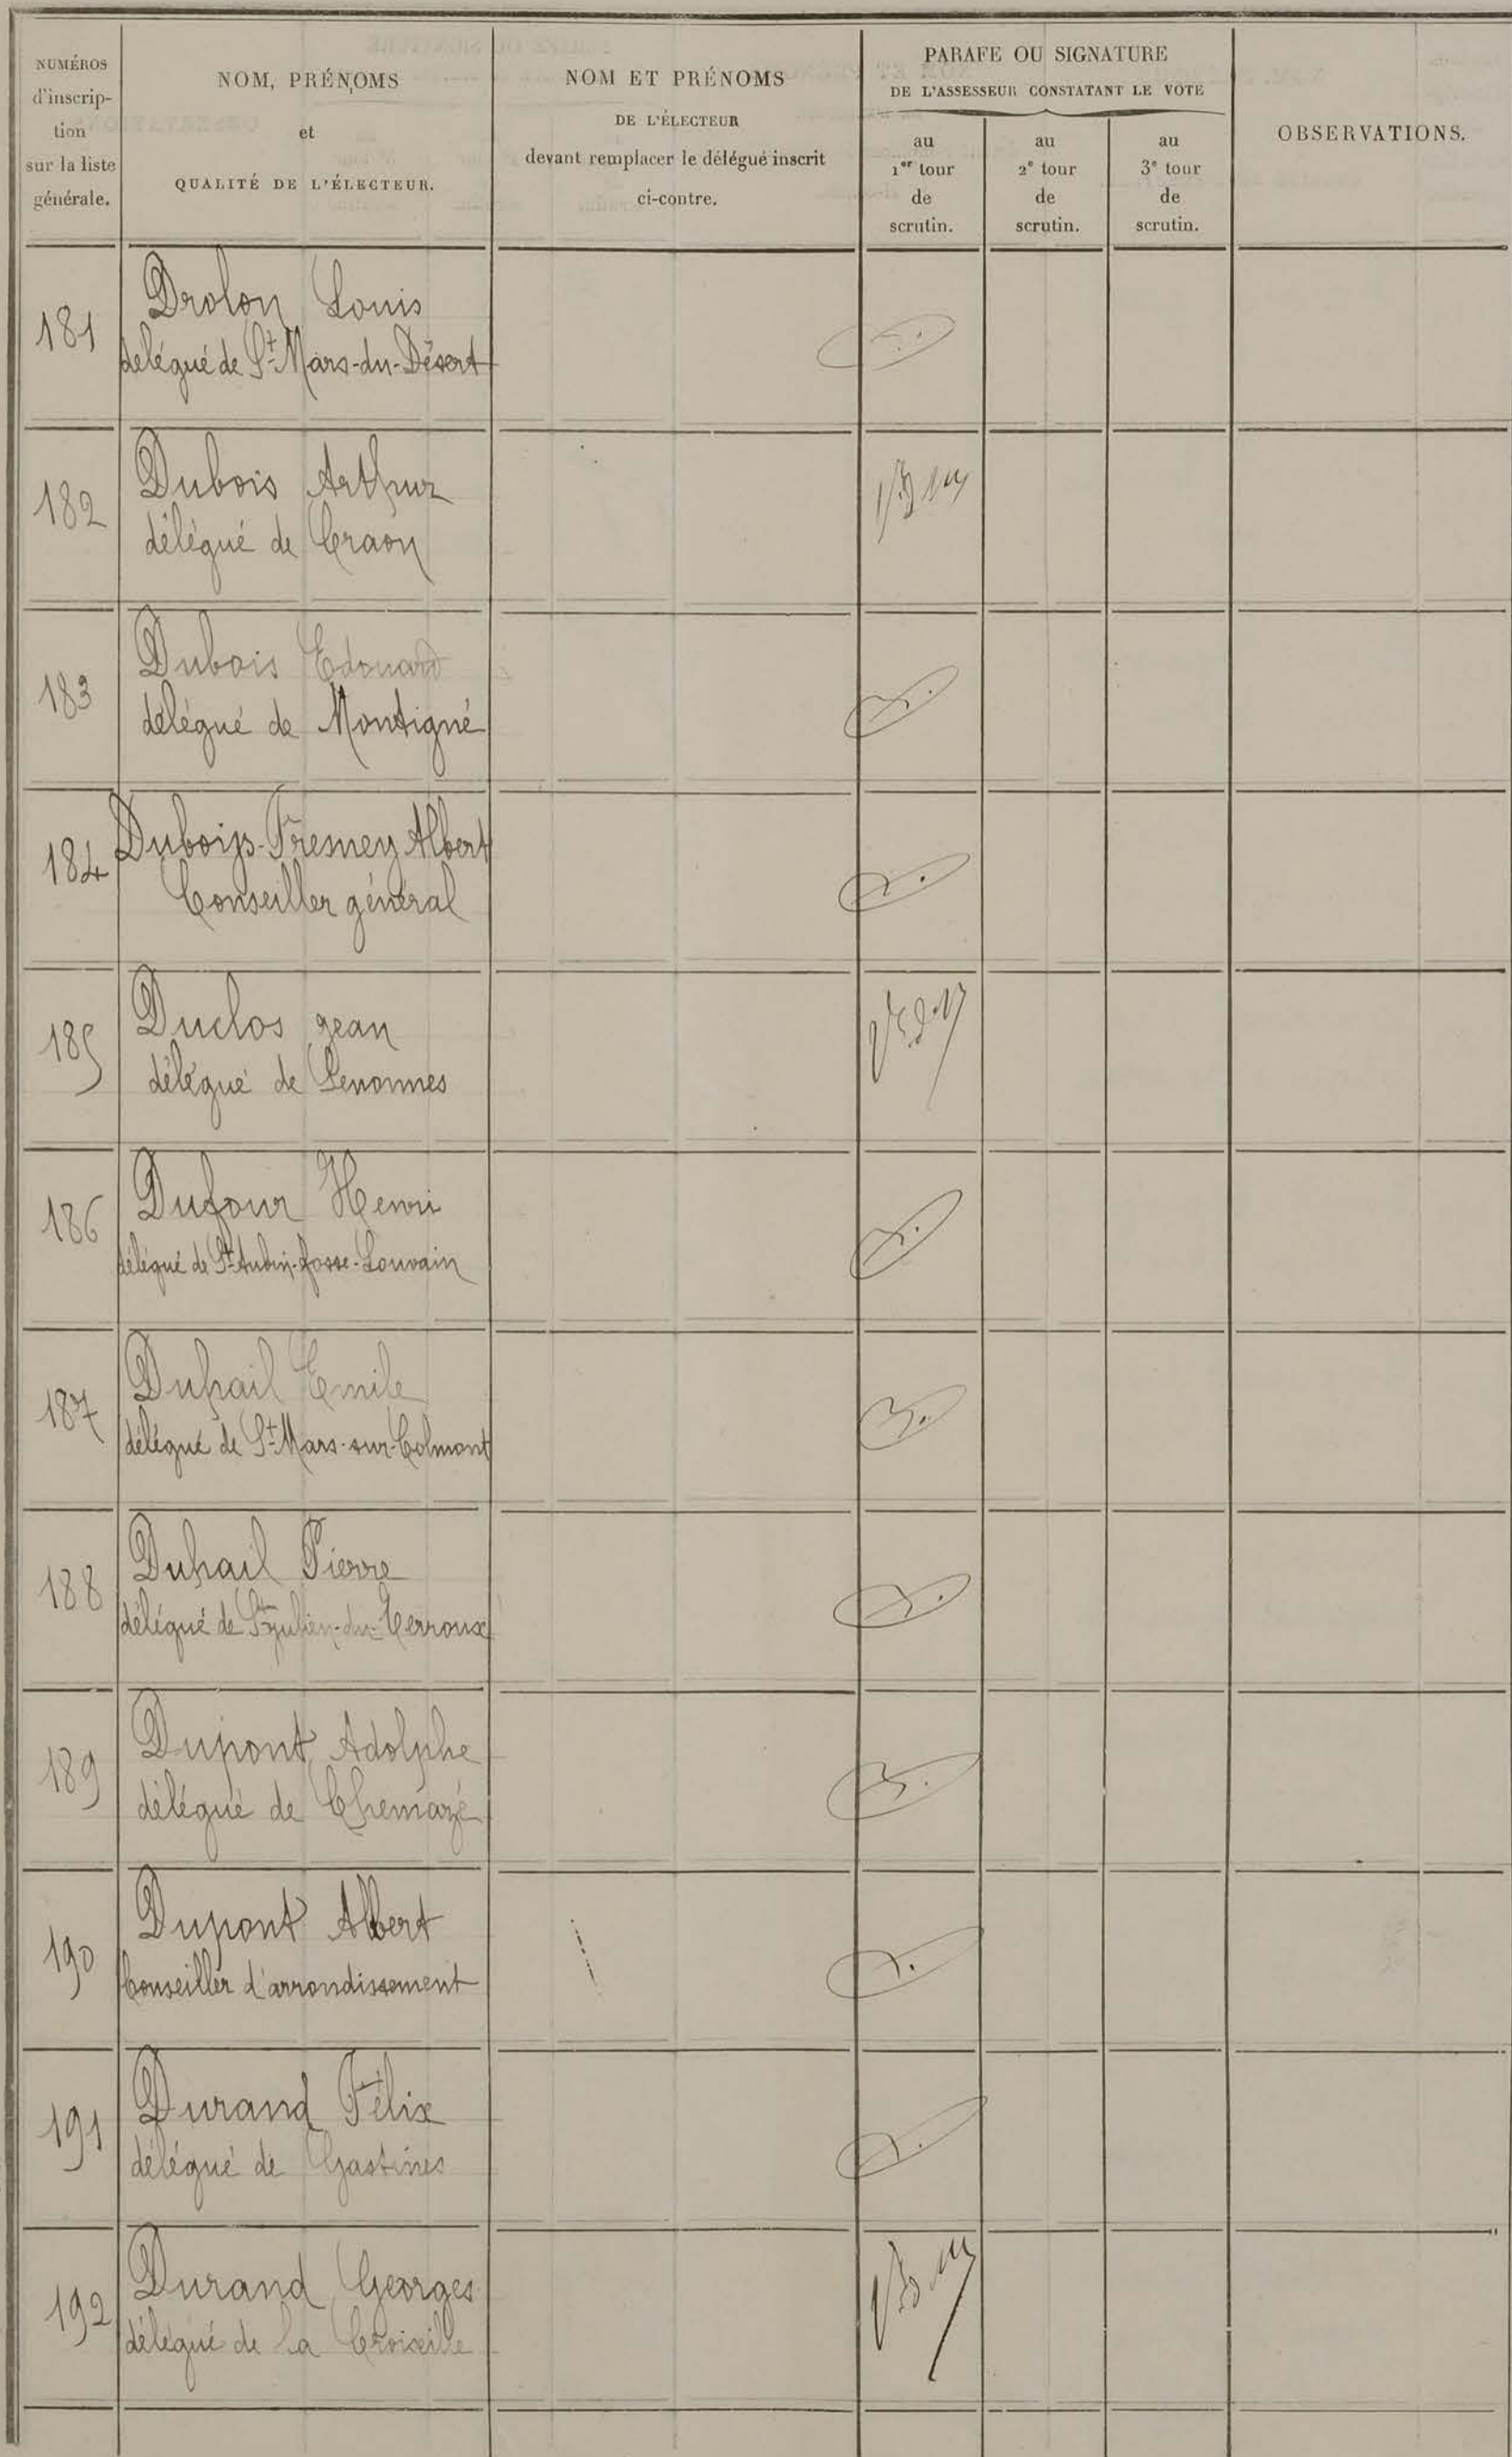 NUMÉROS
d'inscrip-
tion
sur la liste
générale.
NOM, PRÉNOMS
et
QUALITÉ DE L'ÉLECTEUR.
NOM ET PRÉNOMS
DE L'ÉLECTEUR
devant remplacer le délégué inscrit
ci-contre.
PARAFE OU SIGNATURE
DE L'ASSESSEUR CONSTATANT LE VOTE
au
1er tour
de
scrutin.
au
2e tour
de
scrutin.
au
3e tour
de
scrutin.
OBSERVATIONS.
181
Drolon Louis
délégué de St Mars-du-Désert
182
Dubois Arthur
délégué de Craon
183
Dubois Edouard
délégué de Montigné
184
Dubois-Fresney Albert
Conseiller général
185
Duclos Jean
délégué de Senonnes
186
Dufour Henri
délégué de St Aubin-fosse-Louvain
187
Duhail Emile
délégué de St Mars-sur-Colmont
188
Duhail Pierre
délégué de St Julien-du-Terroux
189
Dupont Adolphe
délégué de Chemazé
190
Dupont Albert
Conseiller d'arrondissement
191
Durand Félix
délégué de Gastines
192
Durand Georges
délégué de la Croixille